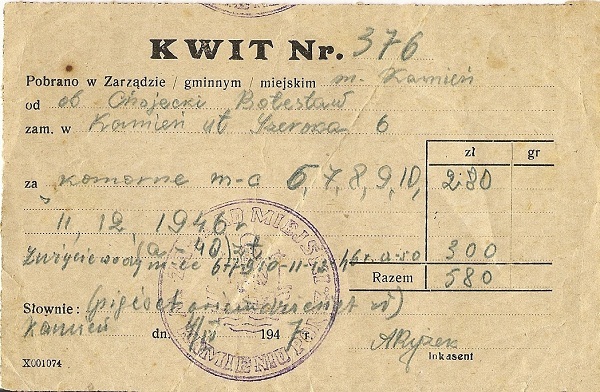 KWIT Nr. 376
Pobrano w Zarządzie / gminnym / miejskim m. Kamień
od ob Chojacki Bolesław
zam. w Kamień ul Szeroka 6
zł gr
za komorne m-c 6, 7, 8, 9, 10, 280
11, 12, 1946 r.
(a - 40 zł
Zużycie wody m-ce 6-7-8-9-10-11-12/46 r. a-50 300
Razem 580
Słownie: (pięćset osiemdziesiąt zł)
Kamień dn. 194 7 r.
ARyżek
X001074 Inkasent
MIEJSKI
KAMIENIU